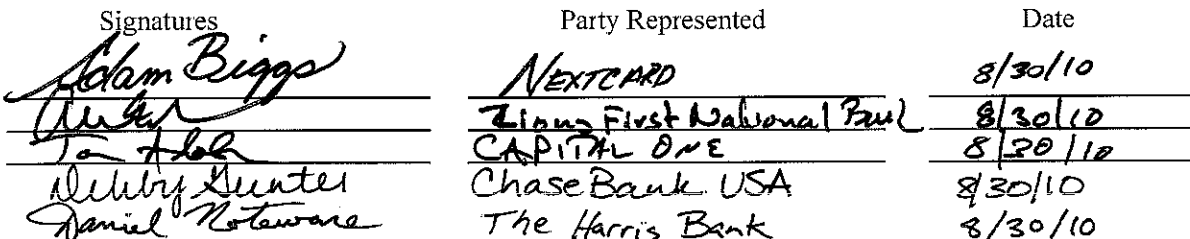 Signatures Party Represented Date
Adam Biggs NEXTCARD 8/30/10
First National Bank 8/30/10
Tom CAPITAL ONE 8/30/10
Debby Gunter Chase Bank USA 8/30/10
Daniel Noteware The Harris Bank 8/30/10